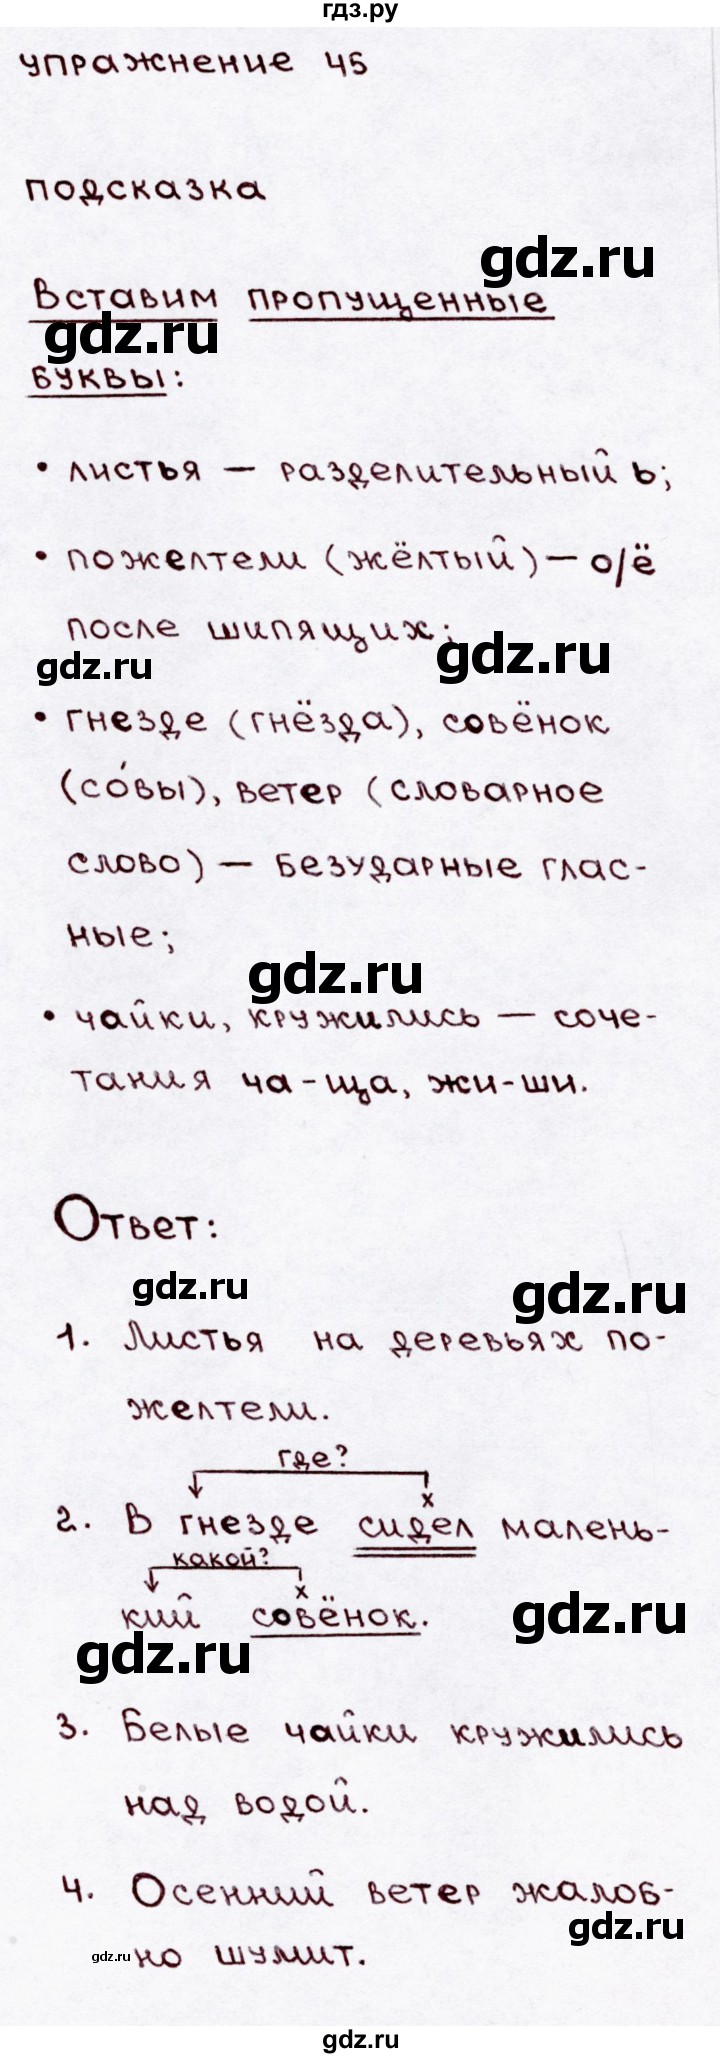 гдз.ру
упражнение 45
подсказка
gdz.ru
Вставим пропущенные
gdz.ru
буквы:
• листья — разделительный ь;
• пожелтели (жёлтый) — о/ё
после шипящих;
gdz.ru
gdz.ru
• гнезде (гнёзда), совёнок
(со́вы), ветер (словарное
слово) — безударные глас-
ные;
gdz.ru
• чайки, кружились — соче-
тания ча-ща, жи-ши.
Ответ:
gdz.ru
gdz.ru
1. Листья на деревьях по-
желтели.
где?
х
2. В гнезде сидел малень-
какой?
х
кий совёнок.
gdz.ru
gdz.ru
3. Белые чайки кружились
над водой.
4. Осенний ветер жалоб-
gdz.ru
gdz.ru
но шумит.
gdz.ru